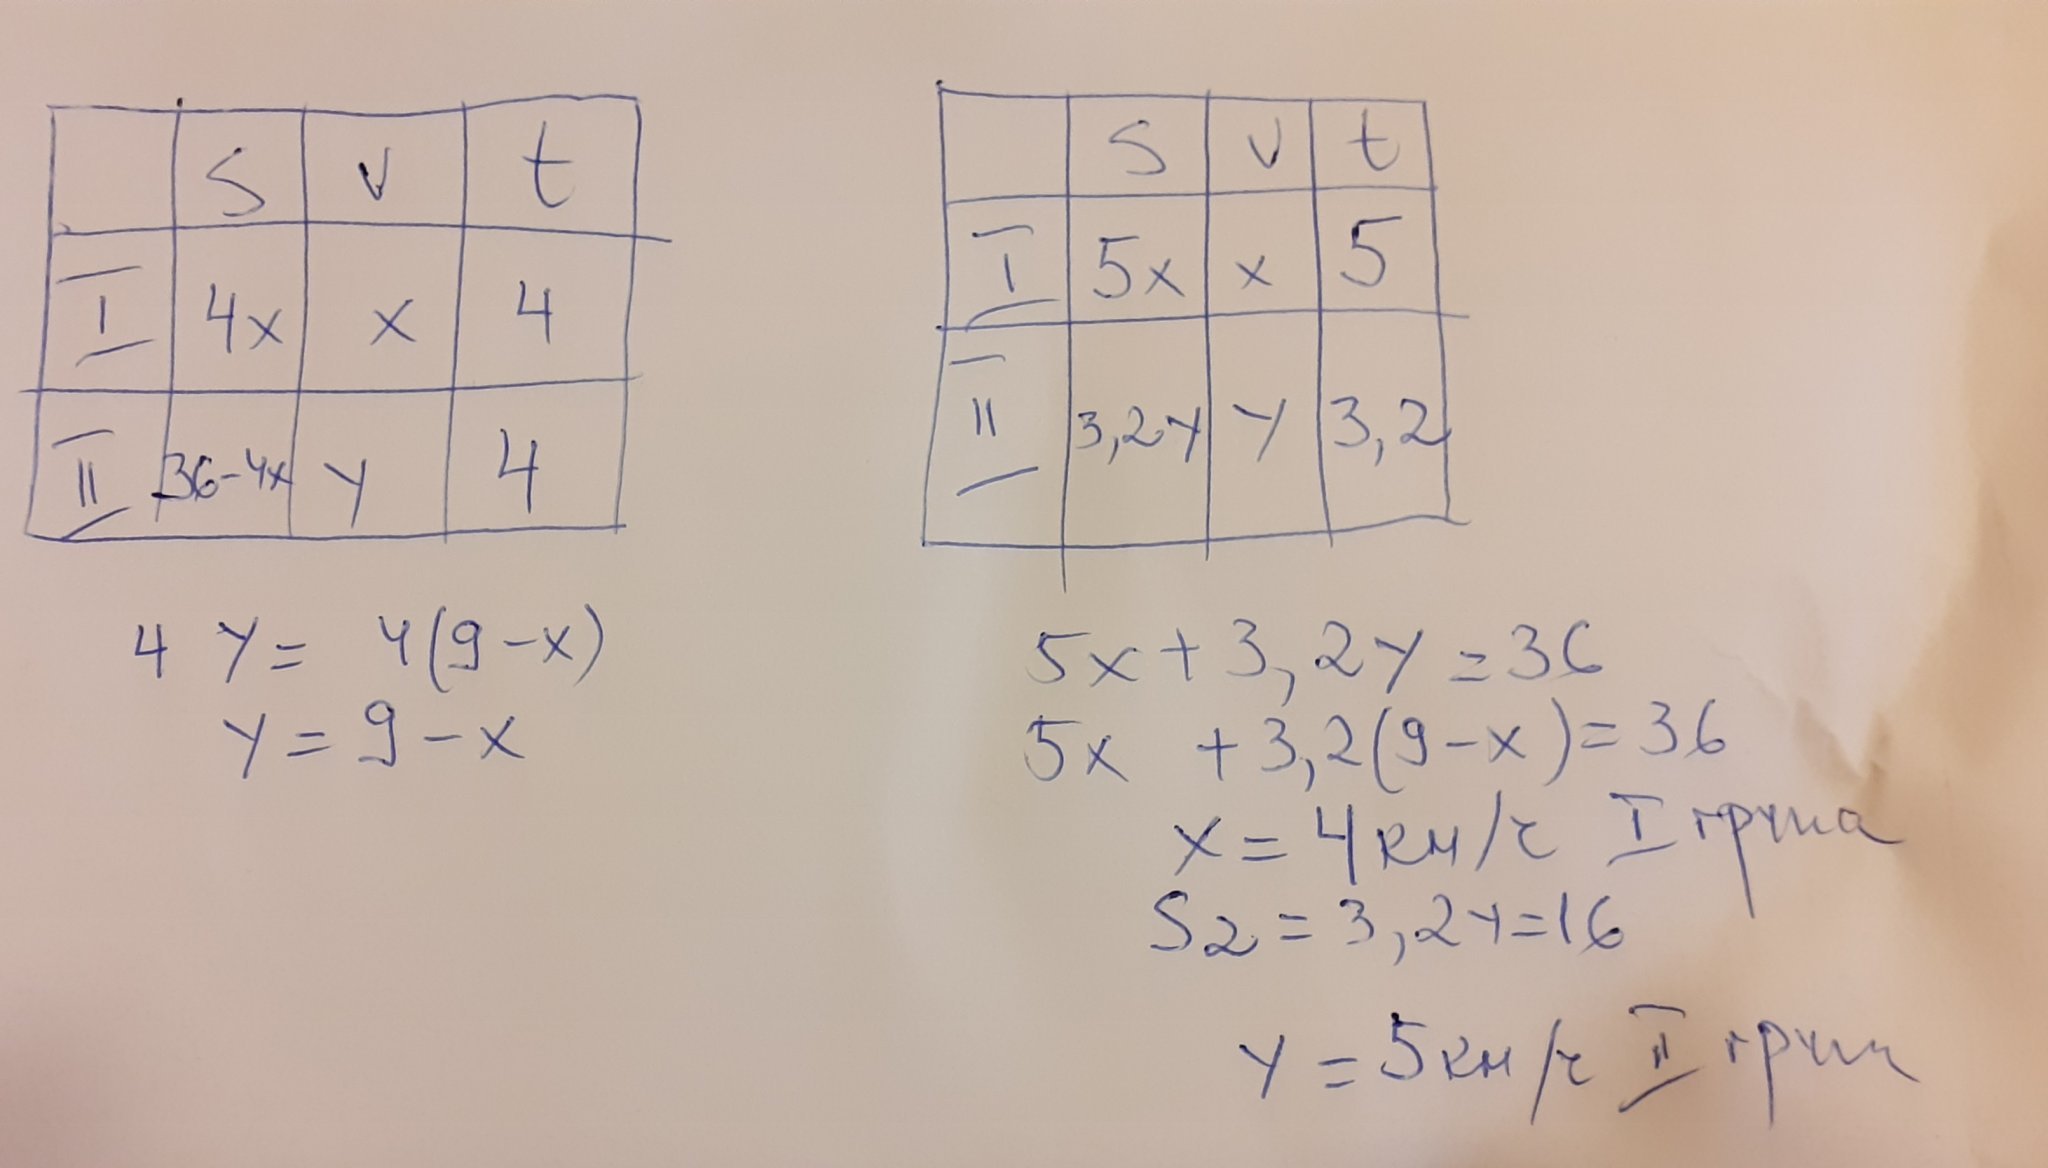 S v t
I 4x x 4
II 36-4x y 4
4 y = 4(9-x)
y = 9-x
S v t
I 5x x 5
II 3,2y y 3,2
5x+3,2y=36
5x +3,2(9-x)=36
x = 4км/ч I група
S2 = 3,2y=16
y = 5км/ч II